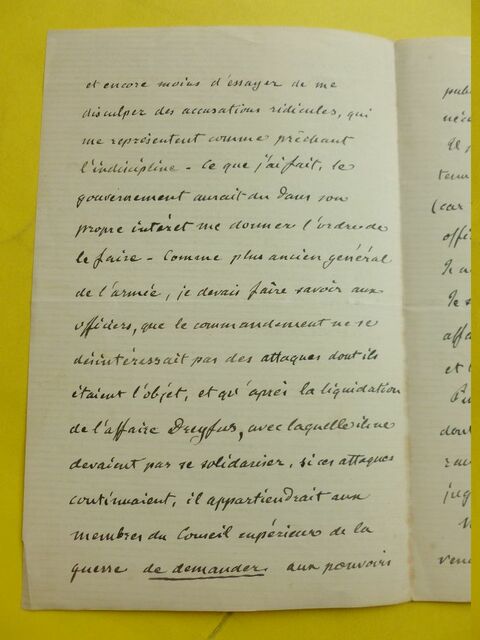 et encore moins d'essayer de me
disculper des accusations ridicules, qui
me représentent comme prêchant
l'indiscipline - Ce que j'ai fait, le
gouvernement aurait du dans son
propre intérêt me donner l'ordre de
le faire - Comme plus ancien général
de l'armée, je devais faire savoir aux
officiers, que le commandement ne se
désintéressait pas des attaques dont ils
étaient l'objet, et qu'après la liquidation
de l'affaire Dreyfus, avec laquelle ils ne
devaient pas se solidariser, si ces attaques
continuaient, il appartiendrait aux
membres du Conseil supérieur de la
guerre de demander aux pouvoirs
publ
néce
Il
tenu
(car
offi
Je
Je s
affa
et
dont